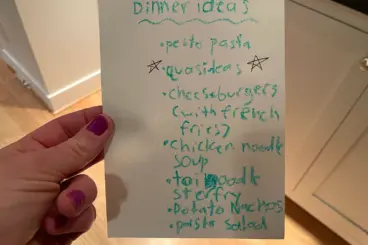 Dinner ideas
• pesto pasta
• quasideas
• cheeseburgers
(with french
fries)
• chicken noodle
soup
• toi noodle
sterfry
• Potato Nachos
• pasta salad